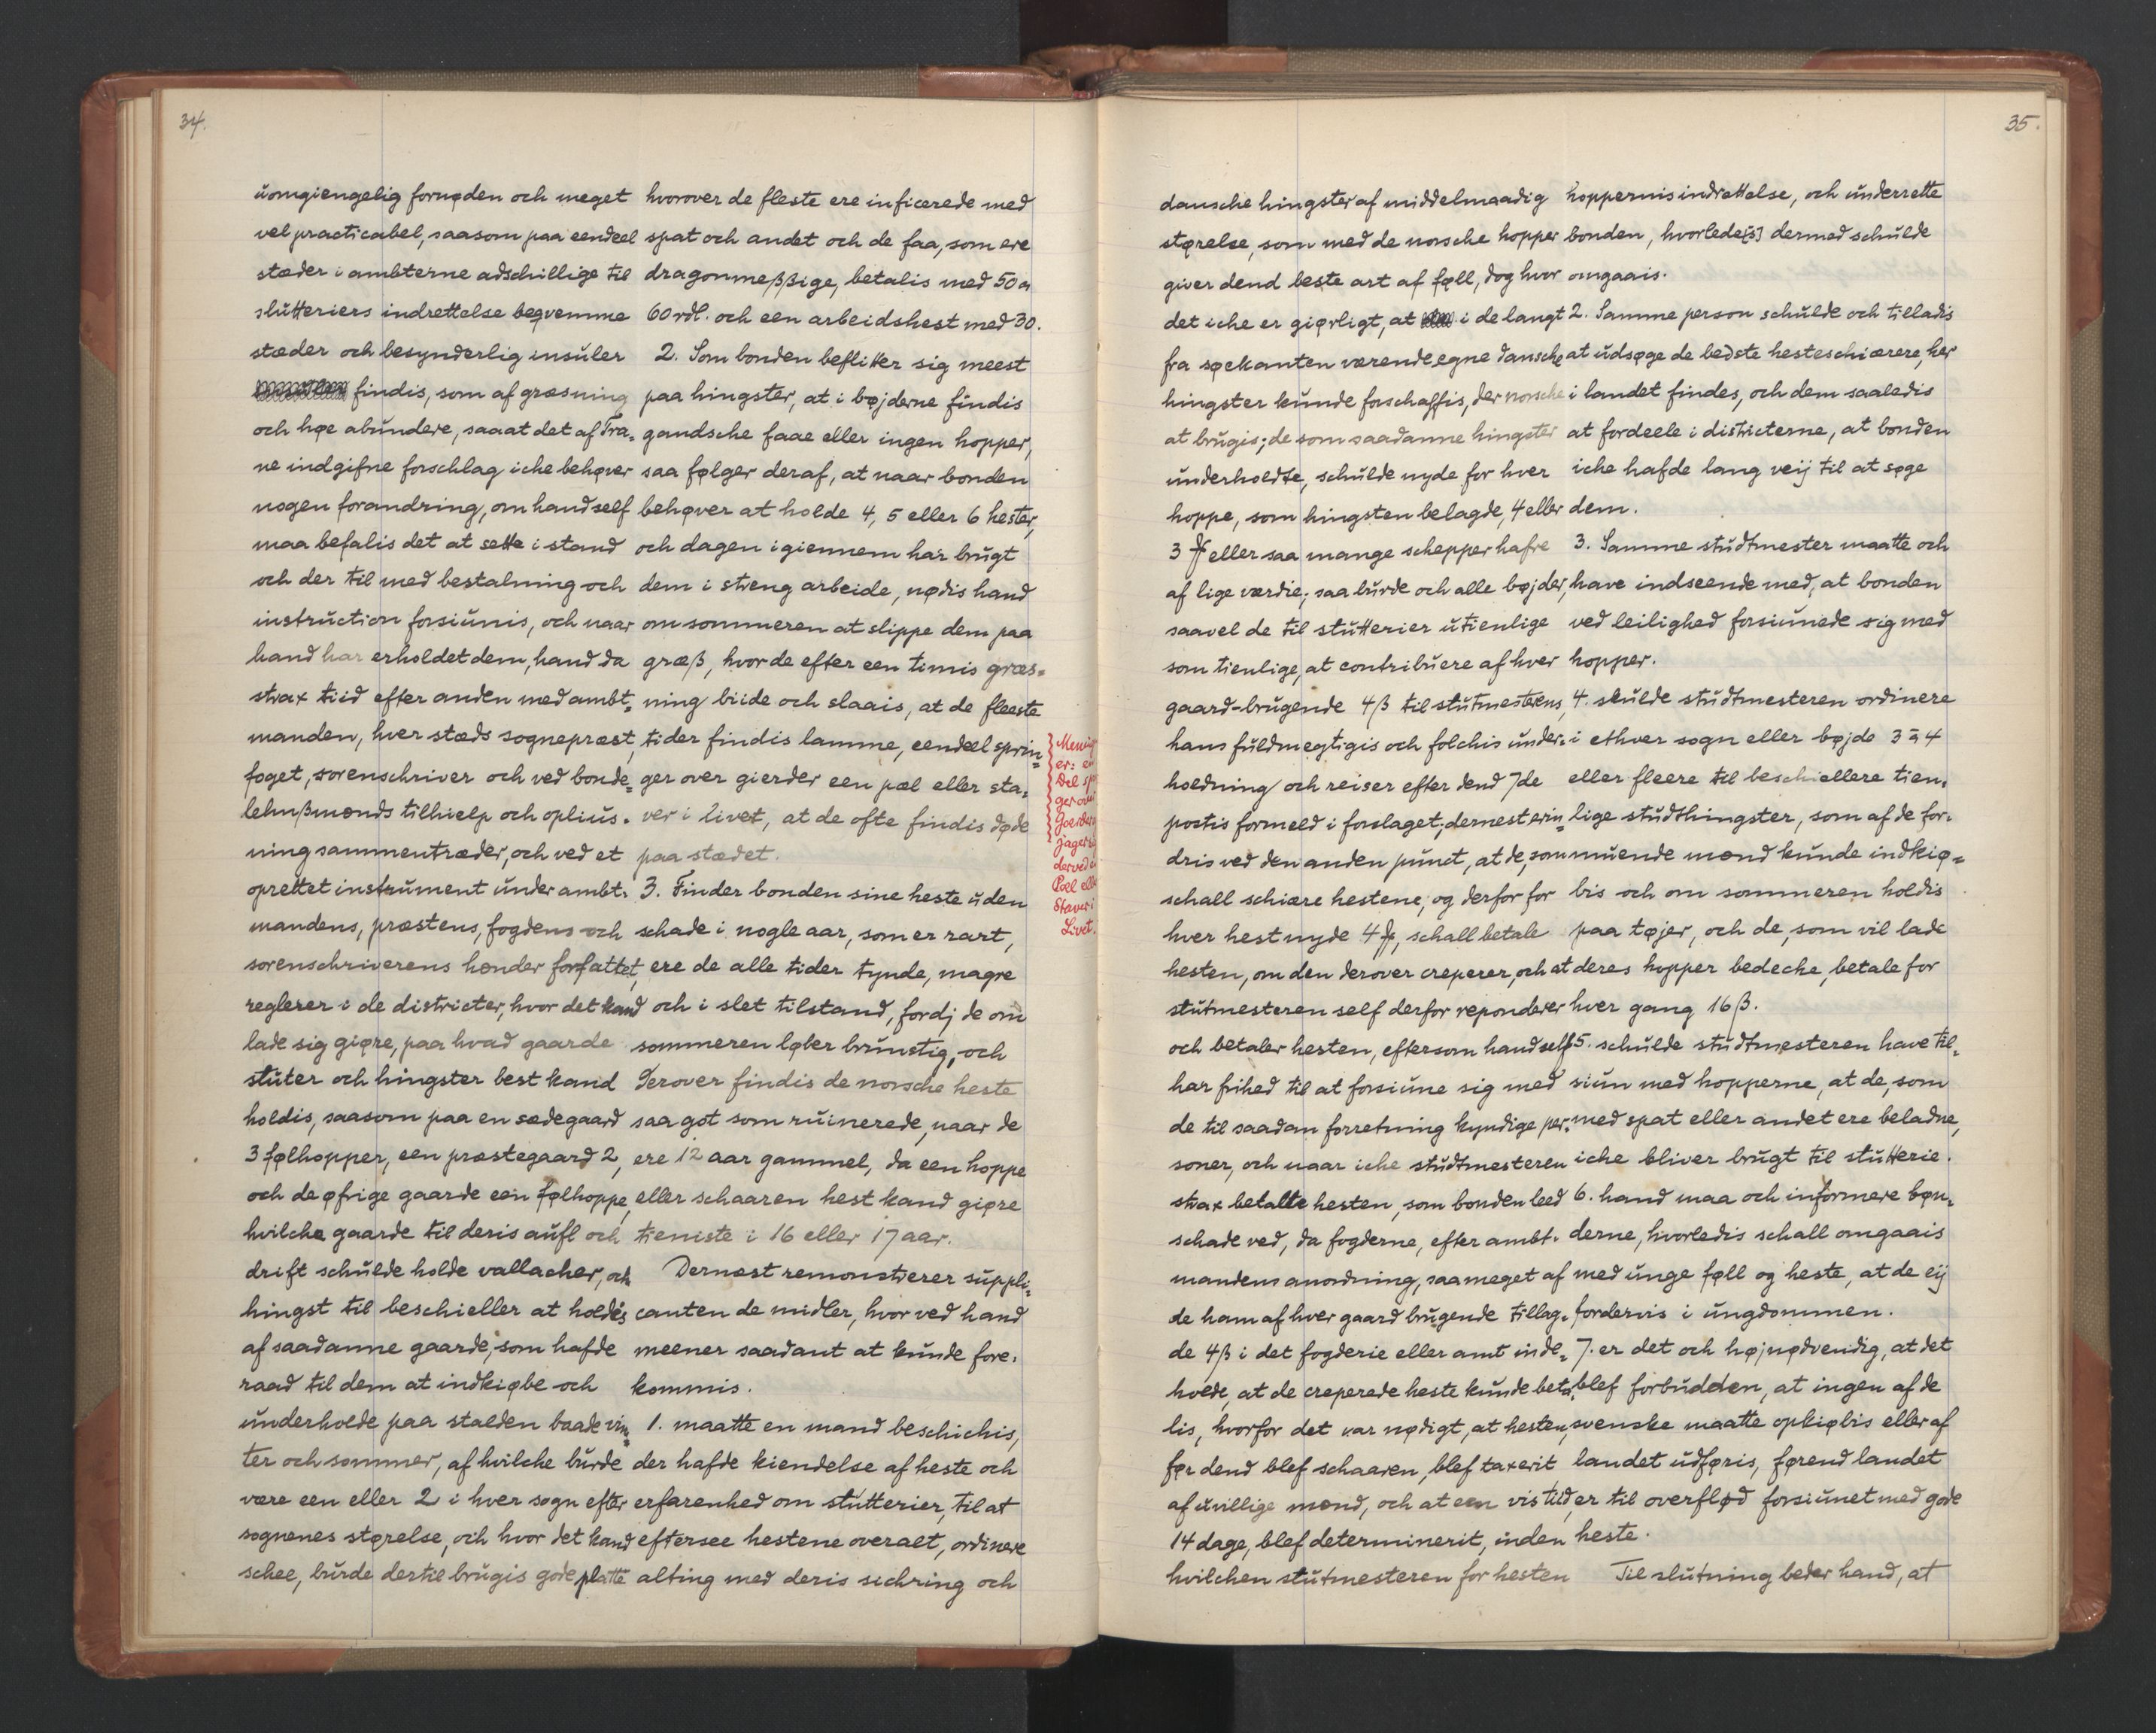 34.
uomgiengelig fornøden och meget
vel practicabel, saasom paa eendeel
stæder i ambterne adschillige til
stutteriers indrettelse beqvemme
stæder och besynderlig insuler
findis, som af græsning
och høe abundere, saaat det af Tra-
ne indgifne forschlag iche behøver
nogen forandring, om hand self
maa befalis det at sette i stand
och der til med bestalning och
instruction forsiunis, och naar
hand har erholdet dem, hand da
strax tiid efter anden med ambt-
manden, hver stæds sognepræst,
foget, sorenschriver och ved bonde-
lehnßmænds tilhielp och oplius-
ning sammentræder, och ved et
oprettet instrument under ambt-
mandens, præstens, fogdens och
sorenschriverens hænder forfattet,
reglerer i de districter, hvor det kand
lade sig giøre, paa hvad gaarde
stuter och hingster best kand
holdis, saasom paa en sædegaard
3 følhopper, een præstegaard 2,
och de øfrige gaarde een følhoppe,
hvilche gaarde til deris aufl och
drift schulde holde vallacher, och
hingst til beschieller at holdes
af saadanne gaarde, som hafde
raad til dem at indkiøbe och
underholde paa stalden baade vin-
ter och sommer, af hvilche burde
være een eller 2 i hver sogn efter
sognenes størelse, och hvor det kand
schee, burde dertil brugis gode platte
hvorover de fleste ere inficerede med
spat och andet och de faa, som ere
dragonmeßßige, betalis med 50 a
60 rdl. och een arbeidshest med 30.
2. Som bonden beflitter sig meest
paa hingster, at i bøjderne findis
gandsche faae eller ingen hopper,
saa følger deraf, at naar bonden
behøver at holde 4, 5 eller 6 hester,
och dagen igiennem har brugt
dem i streng arbeide, nødis hand
om sommeren at slippe dem paa
græß, hvor de efter een timis græs-
ning biide och slaais, at de fleeste
tider findis lamme, eendeel sprin-
ger over gierder een pæl eller sta-
ver i livet, at de ofte findis døde
paa stædet.
3. Finder bonden sine heste uden
schade i nogle aar, som er rart,
ere de alle tider tynde, magre
och i slet tilstand, fordj de om
sommeren løber brunstig, och
derover findis de norsche heste
saa got som ruinerede, naar de
ere 12 aar gammel, da een hoppe
eller schaaren hest kand giøre
tieniste i 16 eller 17 aar.
Dernæst remonstrerer suppli-
canten de midler, hvor ved hand
meener saadant at kunde fore-
kommis.
1. maatte en mand beschichis,
der hafde kiendelse af heste och
erfarenhed om stutterier, til at
eftersee hestene overalt, ordinere
alting med deris sichring och
er: en
Del
jager
derved
Pæl
Staver i
Livet.
35.
dansche hingster af middelmaadig
størelse, som med de norsche hopper
giver dend beste art af føll, dog hvor
det iche er giørligt, at i de langt
fra søekanten værende egne dansche
hingster kunde forschaffis, der norsche
at brugis; de som saadanne hingster
underholdte, schulde nyde for hver
hoppe, som hingsten belagde, 4 eller
3 ₰ eller saa mange schepper hafre
af lige værdie; saa burde och alle bøjder,
saavel de til stutterier utienlige
som tienlige, at contribuere af hver
gaard-brugende 4 ß til stutmesterens,
hans fuldmegtigis och folchis under-
holdning och reiser efter dend 7de
postis formeld i forslaget; dernest erin-
dris ved den anden punct, at de, som
schall schiære hestene, og derfor for
hver hest nyde 4 ₰, schall betale
hesten, om den derover creperer, och at
stutmesteren self derfor reponderer
och betaler hesten, eftersom hand self
har frihed til at forsiune sig med
de til saadan forretning kyndige per-
soner, och naar iche studtmesteren
strax betalte hesten, som bonden leed
schade ved, da fogderne, efter ambt-
mandens anordning, saa meget af
de ham af hver gaard brugende tillag-
de 4 ß i det fogderie eller amt inde-
holde, at de creperede heste kunde beta-
lis, hvorfor det var nødigt, at hesten,
før dend blef schaaren, blef taxerit
af uvillige mænd, och at een vis tiid,
14 dage, blef determinerit, inden
hvilchen stutmesteren for hesten
hoppernis indrettelse, och underrette
bonden, hvorlede[s] dermed schulde
omgaais.
2. Samme person schulde och tilladis
at udsøge de bedste hesteschiærere, her
i landet findes, och dem saaledis
at fordeele i districterne, at bonden
iche hafde lang veij til at søge
dem.
3. Samme studtmester maatte och
have indseende med, at bonden
ved leilighed forsiunede sig med
hopper.
4. skulde studtmesteren ordinere
i ethver sogn eller bøjde 3 à 4
eller fleere til beschiellere tien-
lige studthingster, som af de for-
muende mænd kunde indkiø-
bis och om sommeren holdis
paa tøjer, och de, som vil lade
deres hopper bedecke, betale for
hver gang 16 ß.
5. schulde studtmesteren have til-
siun med hopperne, at de, som
med spat eller andet ere beladne,
iche bliver brugt til stutterie.
6. hand maa och informere bøn-
derne, hvorledis schall omgaais
med unge føll og heste, at de eij
fordervis i ungdommen.
7. er det och højnødvendig, at det
blef forbudden, at ingen af de
svenske maatte opkiøbis eller af
landet udføris, førend landet
er til overflød forsiunet med gode
heste.
Til slutning beder hand, at